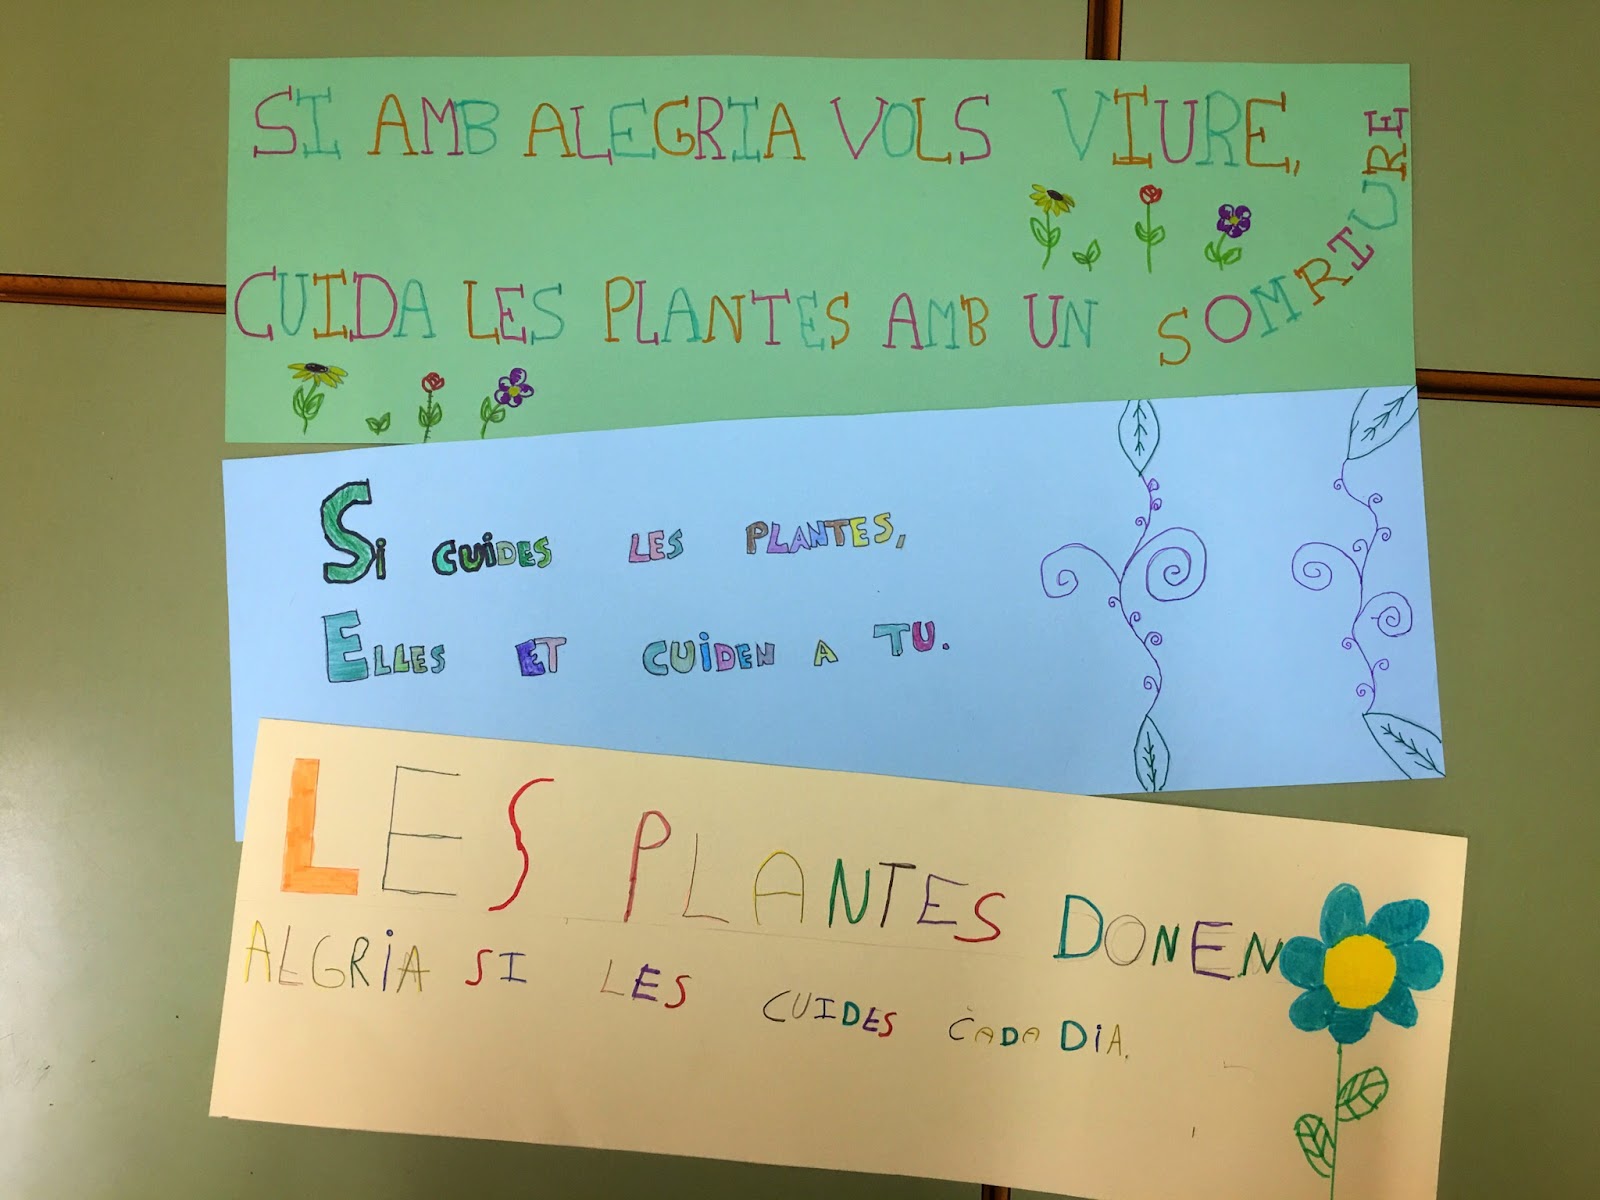 SI AMB ALEGRIA VOLS VIURE,
CUIDA LES PLANTES AMB UN SOMRIURE
Si CUiDES LES PLANTES,
ELLES ET CUiDEN A TU.
LES PLANTES DONEN
ALEGRiA SI LES CUIDES CADA DiA.